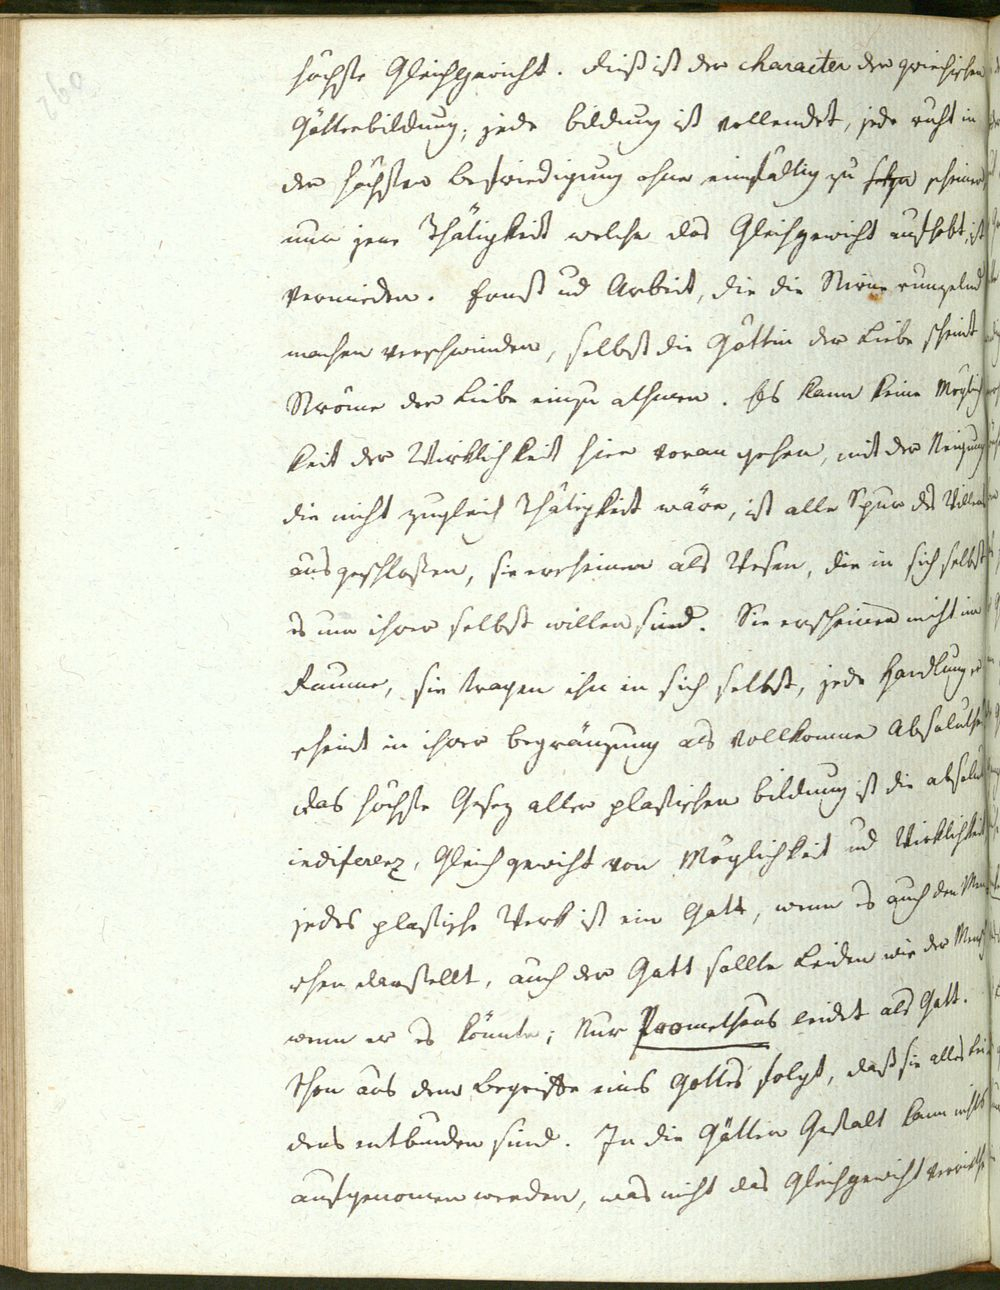 260
höchste Gleichgewicht. dieß ist der character der griechischen
Götterbildung; jede bildung ist vollendet, jede ruht in
der höchsten befriedigung ohne einfältig zu scheinen
nur jene Thätigkeit welche das Gleichgewicht aufhebt, ist
vermieden. Ernst und Arbeit, die die Stirne runzelnd
machen verschwinden, selbst die Göttin der Liebe scheint
Ströme der Liebe einzu athmen. Es kann keine Möglich
keit der Wirklichkeit hier voran gehen, mit der Neigung
die nicht zugleich Thätigkeit wäre, ist alle Spur des Willens
ausgeschloßen, sie erscheinen als Wesen, die in sich selbst
es um ihrer selbst willen sind. Sie erscheinen nicht im
Raume, sie tragen ihn in sich selbst, jede Handlung er
scheint in ihrer begränzung als vollkomne Absoluthe
das höchste Gesez aller plastischen bildung ist die absolut
indiferenz, Gleichgewicht von Möglichkeit und Wirklichkeit
jedes plastische Werk ist ein Gott, wenn es auch den Men
schen darstellt, auch der Gott sollte Leiden wie der Mensch
wenn er es könnte; Nur Prometheus leidet als Gott.
Schon aus dem Begriffe eines Gottes folgt, daß sie alles Lei
dens entbunden sind. In die Götter Gestalt kann nichts
aufgenomen werden, was nicht das Gleichgewicht verrieth